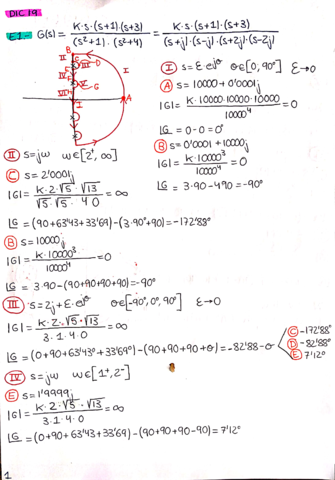 DIC 19
E1- G(s) = K·s·(s+1)·(s+3) / (s²+1)·(s²+4) = K·s·(s+1)·(s+3) / (s+j)·(s-j)·(s+2j)·(s-2j)
B
II
III
D
I
G
A
I s=ε·e^jθ θ∈[0,90°] ε→0
A s=10000+0'0001j
|G|= K·10000·10000·10000 / 10000⁴ = 0
∠G = 0-0=0°
B s=0'0001+10000j
|G|= K·10000³ / 10000⁴ = 0
∠G = 3·90-4·90=-90°
II s=jω ω∈[2⁺,∞]
C s=2'0001j
|G|= K·2·√5·√13 / √5·√5·4·0 = ∞
∠G = (90+63'43+33'69)-(3·90°+90)=-172'88°
B s=10000j
|G|= K·10000³ / 10000⁴ = 0
∠G = 3·90-(90+90+90+90)=-90°
III s=2j+ε·e^jθ θ∈[-90°,0°,90°] ε→0
|G|= K·2·√5·√13 / 3·1·4·0 = ∞
∠G = (0+90+63'43°+33'69°)-(90+90+90+θ)=-82'88-θ
C -172'88°
D -82'88°
E 7'12°
IV s=jω ω∈[1⁺,2⁻]
E s=1'9999j
|G|= K·2·√5·√13 / 3·1·4·0 = ∞
∠G = (0+90+63'43+33'69)-(90+90+90-90)=7'12°
1